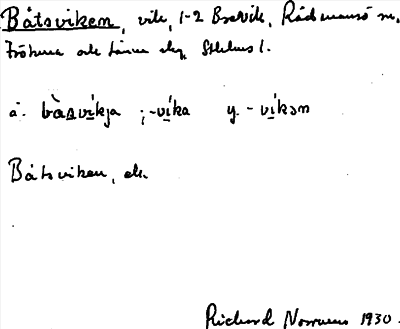 Båtsviken, vik, 1-2 Brevik, Rådmansö sn,
Frötuna och Länna skg, Sthlms l.
ä. bàsvikja ; -víka y. -víkən
Båtsviken, ek.
Richard Norrman 1930.